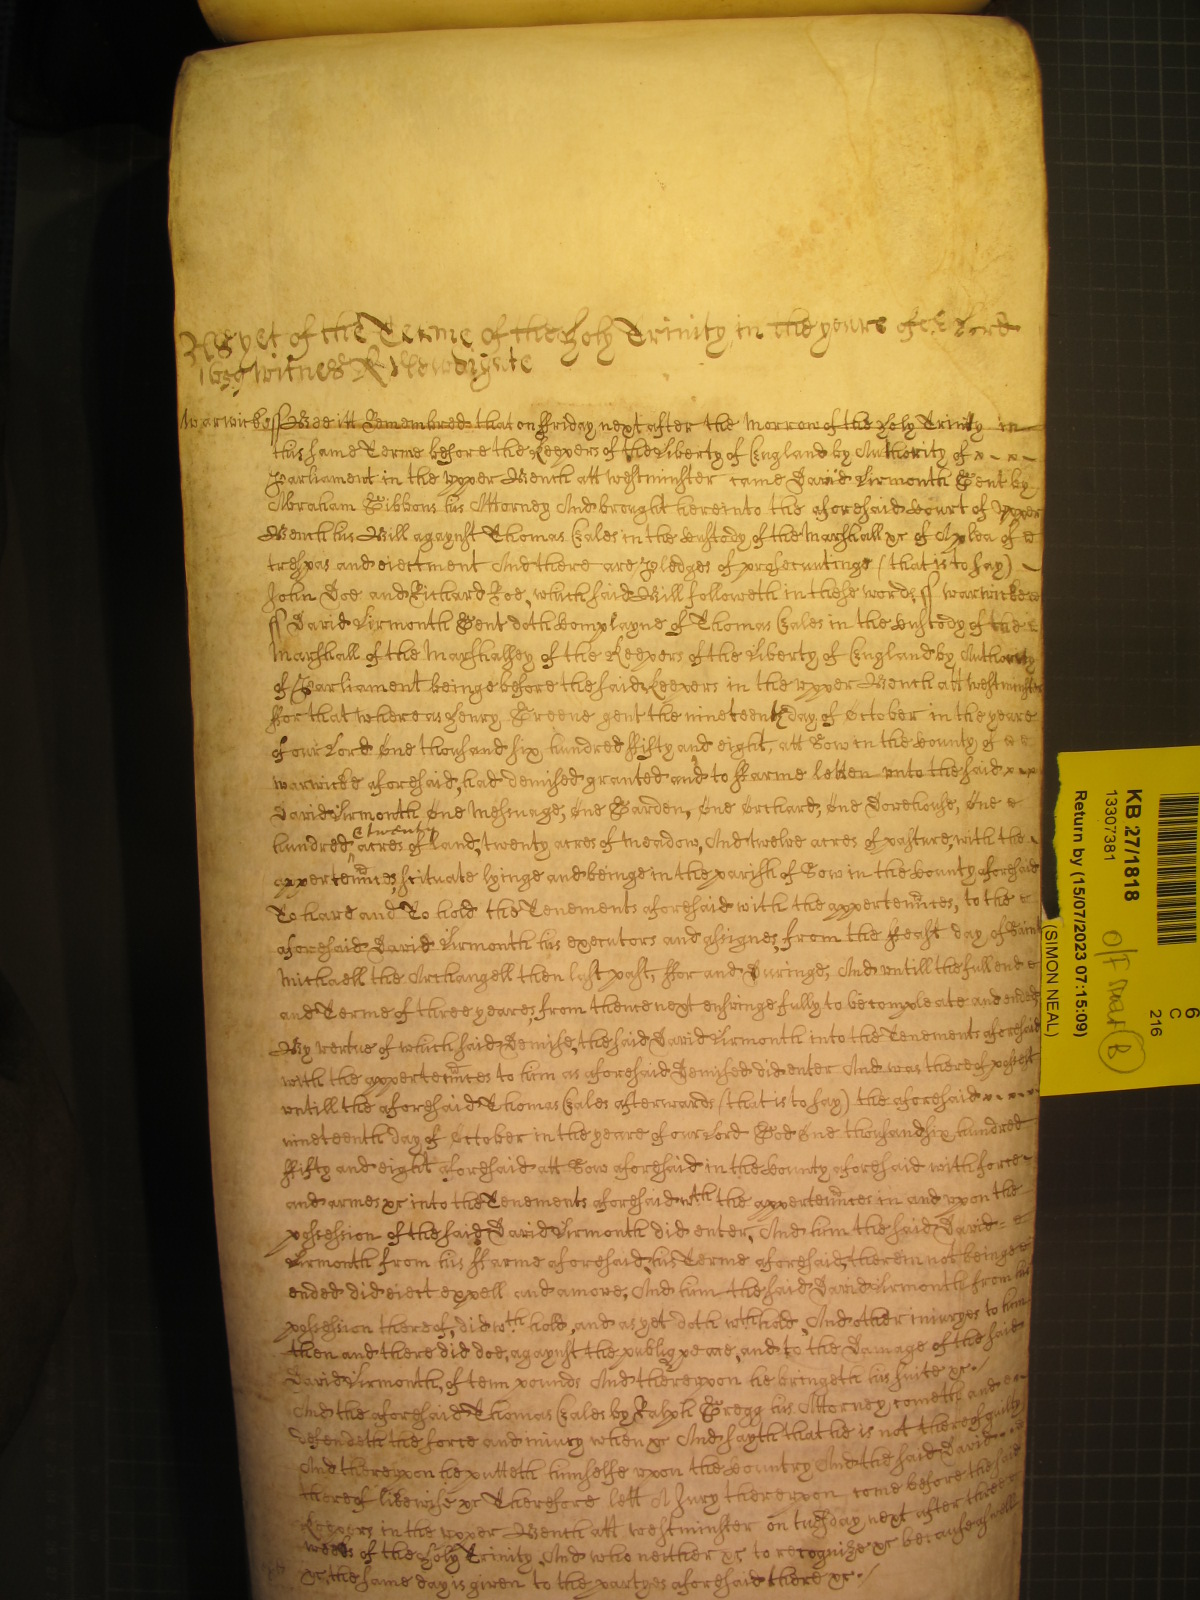 As yet of the Terme of the Holy Trinity in the yeare of o.r Lord
1659 witnes R Newdigate
Warwicke ss Bee itt Remembred that on ffriday next after the Morrow of the Holy Trinity in
this same Terme before the Keepers of the Liberty of England by Authority of
Parliament in the vpper Bench att westminster came David Virmonth Gent by
Abraham Gibbons his Attorney And brought here into the aforesaid Court of vpper
Bench his Bill agaynst Thomas Eales in the Custody of the Marshall &c of A plea of
trespas and eiectment And there are Pledges of prosecutinge (that is to say)
John Doe and Richard Roe, which said Bill followeth in these words ss warwicke
ss David Virmonth Gent doth Complayne of Thomas Eales in the Custody of the
Marshall of the Marshalsey of the Keepers of the Liberty of England by Authority
of Parliament beinge before the said Keepers in the vpper Bench att westminster
ffor that whereas Henry Greene gent the nineteenth day of October in the yeare
of our Lord One thousand six hundred ffifty and eight, att Sow in the County of
warwicke aforesaid, had demised granted and to ffarme letten vnto the said
David Virmonth One Messuage, One Garden, One Orchard, One Dovehouse, One
hundred & twenty acres of Land, twenty acres of meadow, And twelve acres of pasture, with the
appertennces, scituate lyinge and beinge in the parish of Sow in the County aforesaid
To have and To hold the Tenements aforesaid with the appertennces, to the
aforesaid David Virmonth his executors and assignes, from the ffeast day of Saint
Michaell the Archangell then last past, ffor and Duringe, And vntill the full end
and Terme of three yeares, from thence next ensuinge fully to be compleate and ended
By vertue of which said Demise, the said David Virmonth into the Tenements aforesaid
with the appertennces to him as aforesaid Demised did enter And was thereof possest
vntill the aforesaid Thomas Eales afterwards (that is to say) the aforesaid
nineteenth day of October in the yeare of our Lord God One thousand six hundred
ffifty and eight aforesaid att Sow aforesaid in the County aforesaid with force
and armes &c into the Tenements aforesaid wth the appertennces in and vpon the
possession of the said David Virmonth did enter, And him the said David
Virmonth from his ffarme aforesaid, his Terme aforesaid, therein not beinge
ended did eiect expell and amove, And him the said David Virmonth from his
possession thereof, did wth hold, and as yet doth wth hold, And other iniuryes to him
then and there did doe, agaynst the publiq peace, and to the Damage of the said
David Virmonth, of tenn pounds And therevpon he bringeth his suite &c
And the aforesaid Thomas Eales by Ralph Gregg his Attorney, cometh and
defendeth the force and iniury when &c And sayth that he is not thereof guilty
And therevpon he putteth himselfe vpon the Country And the said David
thereof likewise &c Therefore lett A Jury therevpon come before the said
Keepers in the vpper Bench att westminster on tuesday next after three
weeks of the Holy Trinity And who neither &c to recognize &c because as well
&c the same day is given to the partyes aforesaid there &c
KB 27/1818
13307381
Return by (15/07/2023 07:15:09)
(SIMON NEAL)
O/F Near (B)
6
C
216